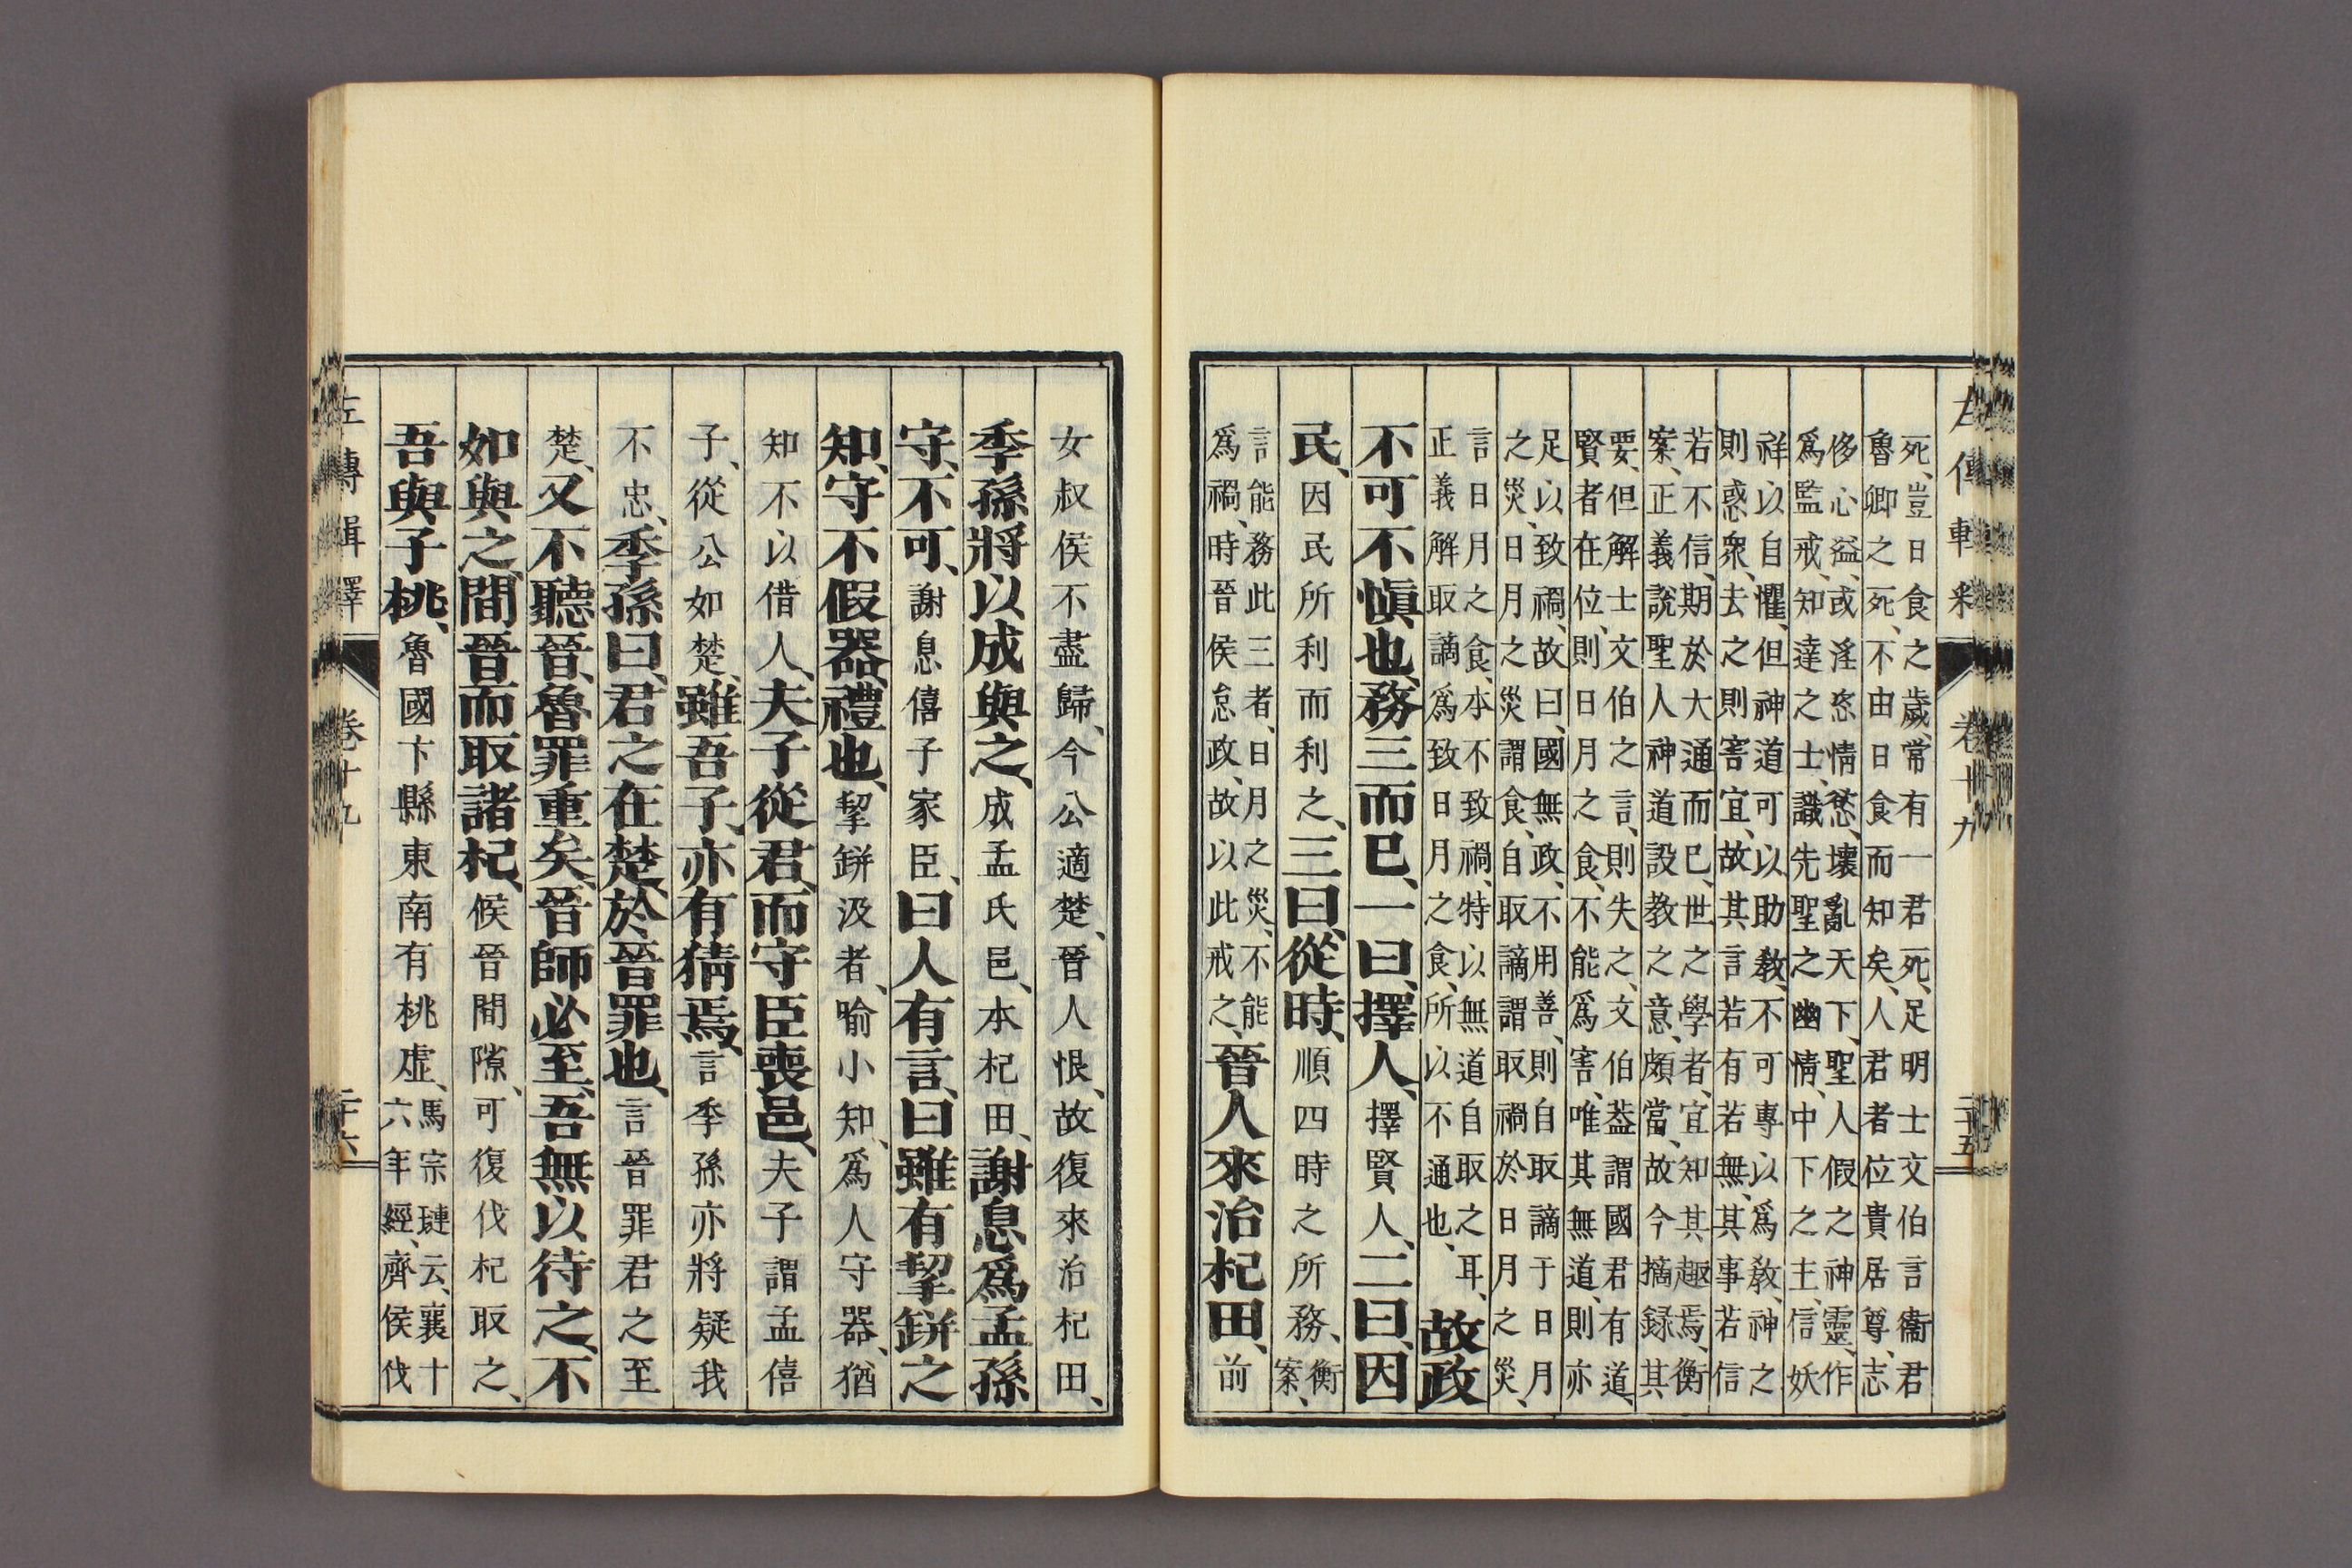 左傳輯釋 卷十九 二十五
死、豈日食之歲、常有一君死、足明士文伯言衞君
魯卿之死、不由日食而知矣、人君者位貴居尊、志
侈心溢、或淫恣情慾、壞亂天下、聖人假之神靈、作
爲監戒、知達之士、識先聖之幽情、中下之主、信妖
祥以自懼、但神道可以助敎、不可專以爲敎、神之
則惑衆、去之則害宜、故其言若有若無、其事若信
若不信、期於大通而已、世之學者、宜知其趣焉、衡
案、正義說聖人神道設教之意、頗當、故今摘録其
要、但解士文伯之言、則失之、文伯葢謂國君有道、
賢者在位、則日月之食、不能爲害、唯其無道、則亦
足以致禍、故曰、國無政、不用善、則自取謫于日月
之災、日月之災謂食、自取謫謂取禍於日月之災、
言日月之食、本不致禍、特以無道自取之耳、
正義解取謫爲致日月之食、所以不通也、故政
不可不愼也、務三而已、一曰、擇人、擇賢人、二曰、因
民、因民所利而利之、三曰、從時、順四時之所務、衡
案、
言能務此三者、日月之災、不能
爲禍、時晉侯怠政、故以此戒之、晉人來治杞田、前
女叔侯不盡歸、今公適楚、晉人恨、故復來治杞田、
季孫將以成與之、成孟氏邑、本杞田、謝息爲孟孫
守、不可、謝息僖子家臣、曰人有言、曰雖有挈缾之
知、守不假器、禮也、挈缾汲者、喻小知、爲人守器、猶
知不以借人、夫子從君、而守臣喪邑、夫子謂孟僖
子、從公如楚、雖吾子、亦有猜焉、言季孫亦將疑我
不忠、季孫曰、君之在楚、於晉罪也、言晉罪君之至
楚、又不聽晉、魯罪重矣、晉師必至、吾無以待之、不
如與之、間晉而取諸杞、候晉間隙、可復伐杞取之、
吾與子桃、魯國卞縣東南有桃虛、馬宗璉云、襄十
六年經、齊侯伐
左傳輯釋 卷十九 二十六